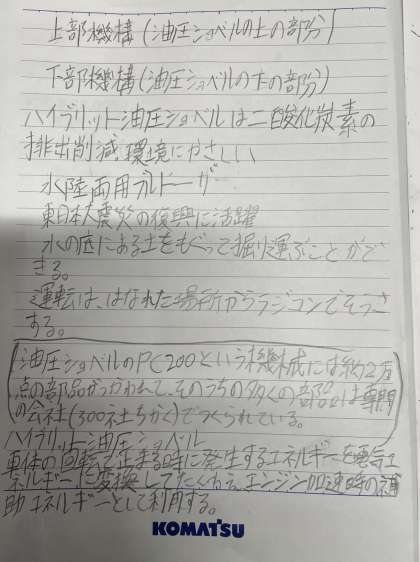 上部機構(油圧ショベルの上の部分)
下部機構(油圧ショベルの下の部分)
ハイブリット油圧ショベルは二酸化炭素の
排出削減、環境にやさしい
水陸両用ブルドーザ
東日本大震災の復興に活躍
水の底にある土をもぐって掘り運ぶことがで
きる。
運転は、はなれた場所からラジコンでそうさ
する。
油圧ショベルのPC200という機械には約2万
点の部品がつかわれて、そのうちの多くの部品は専門
の会社(300社ちかく)でつくられている。
ハイブリット油圧ショベル
車体の回転が止まる時に発生するエネルギーを電気エ
ネルギーに変換してたくわえ、エンジン加速時の補
助エネルギーとして利用する。
KOMATSU